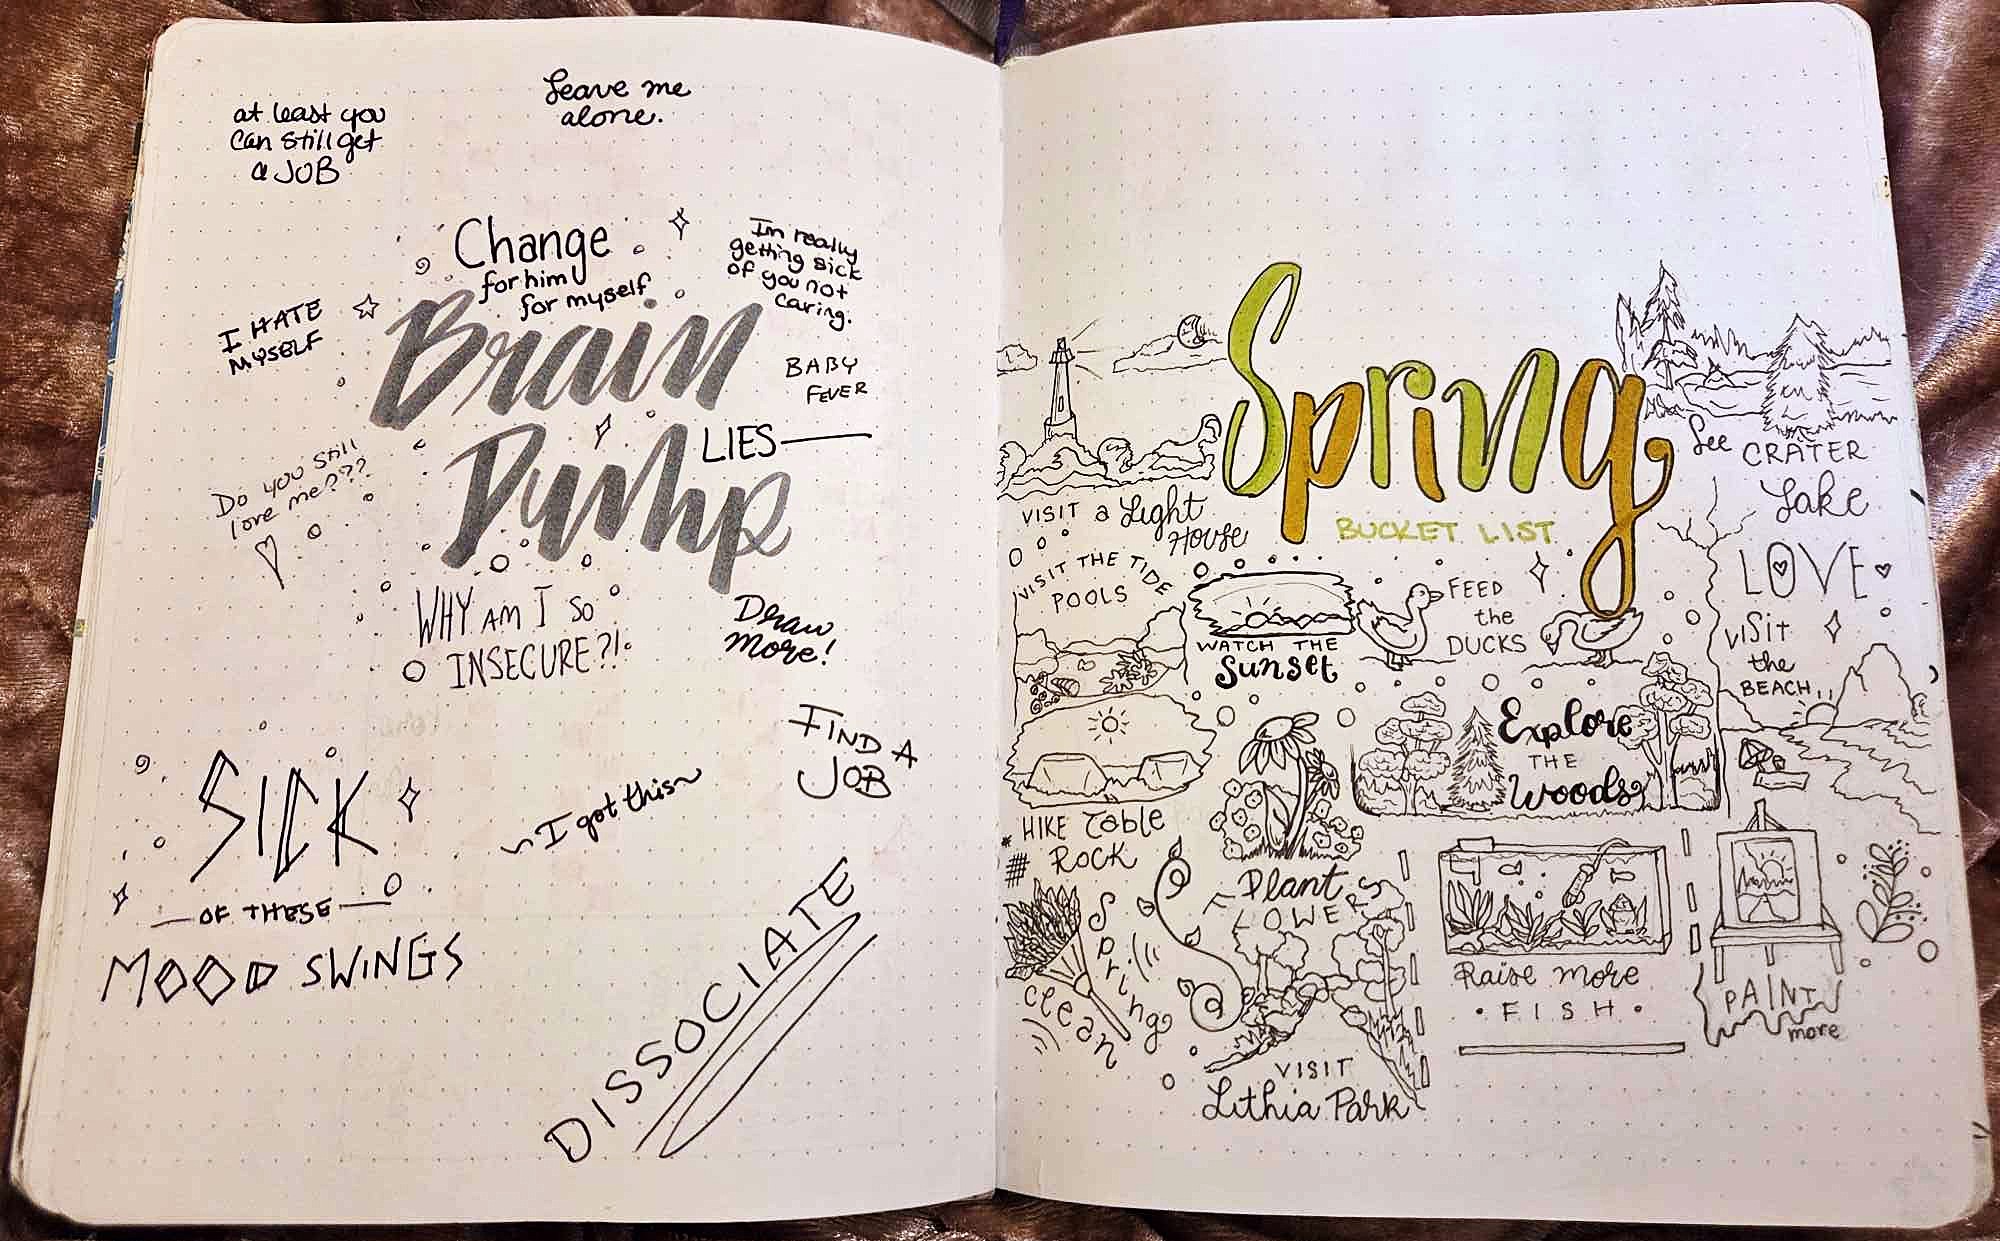 at least you
can still get
a JOB
Leave me
alone.
Change
for him
for myself
Im really
getting sick
of you not
caring.
I HATE
MYSELF
Brain
Dump
BABY
FEVER
LIES
Do you still
love me???
WHY AM I SO
INSECURE?!
Draw
More!
FIND A
JOB
SICK
OF THESE
MOOD SWINGS
I got this
DISSOCIATE
Spring
BUCKET LIST
VISIT a Light
House
See CRATER
Lake
VISIT THE TIDE
POOLS
WATCH THE
Sunset
FEED
the
DUCKS
LOVE
VISIT
the
BEACH
Explore
THE
Woods
HIKE Table
ROCK
Plant
FLOWERS
Spring
clean
Raise more
FISH
PAINT
more
VISIT
Lithia Park